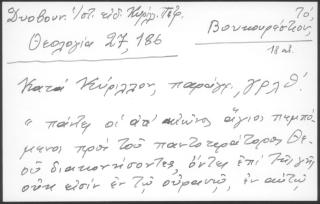 Δυοβουν. Ἱστ. εἰδ. Κυρίλλ. Πέρ. Το,
Θεολογία 27, 186 Βουκουρεστίου,
18 αἰ.
Κατὰ Κύριλλον, παράγρ.,
“ πάντες οἱ ἀπ’ αἰῶνος ἅγιοι πεμπό-
μενοι πρὸς τοῦ παντοκράτορος Θε-
οῦ διακονήσοντες, ὄντες ἐπὶ τῆς γῆς
οὐκ εἰσὶν ἐν τῷ οὐρανῷ, ἐν αὐτῷ